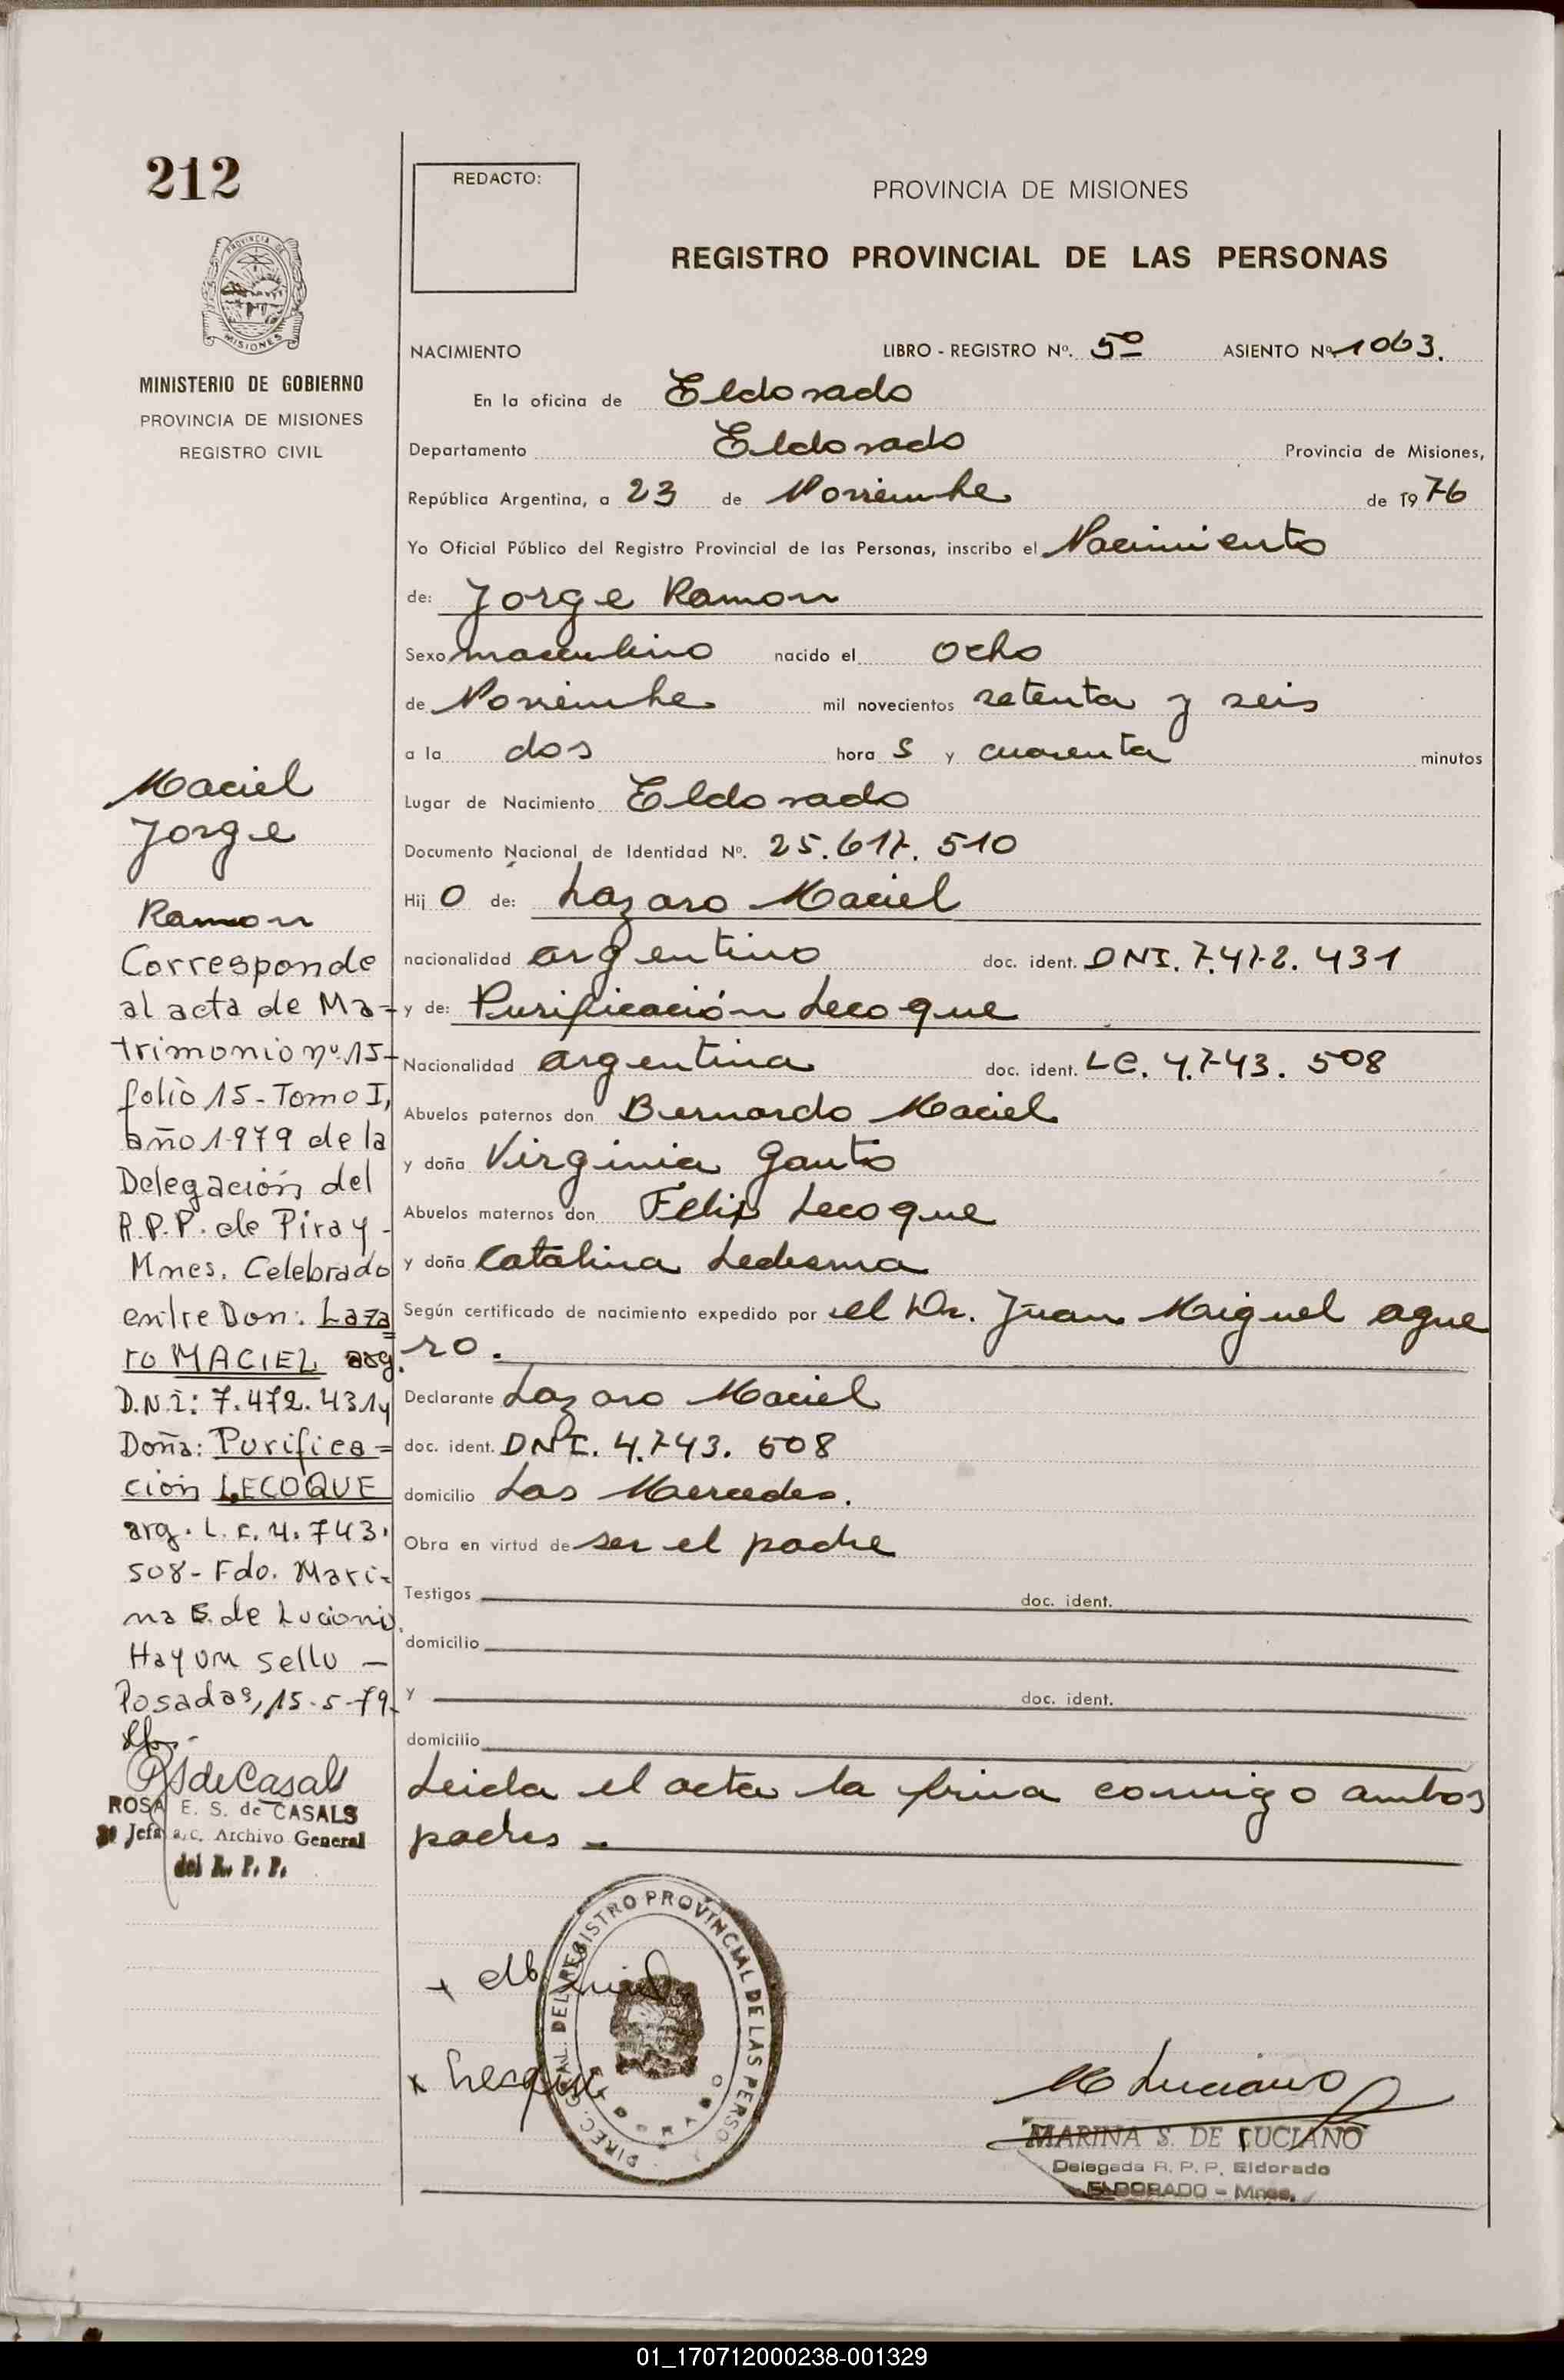 212
REDACTO:
PROVINCIA DE MISIONES
REGISTRO PROVINCIAL DE LAS PERSONAS
PROVINCIA DE
MISIONES
MINISTERIO DE GOBIERNO
PROVINCIA DE MISIONES
REGISTRO CIVIL
NACIMIENTO LIBRO - REGISTRO Nº. 5º ASIENTO Nº 1063.
En la oficina de Eldorado
Departamento Eldorado Provincia de Misiones,
República Argentina, a 23 de Noviembre de 1976
Yo Oficial Público del Registro Provincial de las Personas, inscribo el Nacimiento
de: Jorge Ramon
Sexo masculino nacido el ocho
de Noviembre mil novecientos setenta y seis
a la dos hora s y cuarenta minutos
Lugar de Nacimiento Eldorado
Documento Nacional de Identidad Nº. 25.617.510
Hij o de: Lazaro Maciel
nacionalidad argentino doc. ident. DNI. 7.472.431
y de: Purificación Lecoque
Nacionalidad argentina doc. ident. LC. 4.743.508
Abuelos paternos don Bernardo Maciel
y doña Virginia Gauto
Abuelos maternos don Felix Lecoque
y doña Catalina Ledesma
Según certificado de nacimiento expedido por el Dr. Juan Miguel ague
ro.
Declarante Lazaro Maciel
doc. ident. DNI. 4.743.508
domicilio Las Mercedes.
Obra en virtud de ser el padre
Testigos doc. ident.
domicilio
y doc. ident.
domicilio
Leida el acta la firma conmigo ambos
padres -
Maciel
Jorge
Ramon
Corresponde
al acta de Ma-
trimonio nº 15-
folio 15- Tomo I,
año 1979 de la
Delegación del
R.P.P. de Piray -
Mnes. Celebrado
entre Don: Laza=
ro MACIEL arg.
D.N.I: 7.472.431 y
Doña: Purifica=
ción LECOQUE
arg. L.C. 4.743.
508- Fdo. Mari-
na S. de Lucioni
Hay un sello -
Posadas, 15-5-79.
RSdeCasals
ROSA E. S. de CASALS
Jefa a/c. Archivo General
del R. P. P.
DIREC. GRAL. DEL REGISTRO PROVINCIAL DE LAS PERSO
ELDORADO
x Lecoque
M Luciano
MARINA S. DE LUCIANO
Delegada R. P. P. Eldorado
ELDORADO - Mnes.
01_170712000238-001329